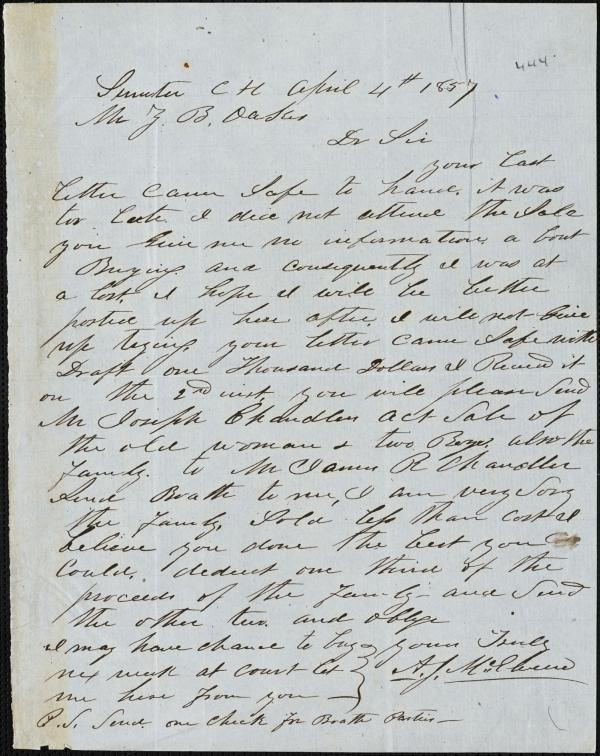 444
Sumter C H April 4th 1857
Mr Z. B. Oakes
Dr Sir
your Last
letter came Safe to hand, it was
too Late I dice not attend the Sale
you Give me no information, a bout
Buying and consequently I was at
a Lost, I hope I will be better
posted up here after, I will not Give
up trying, your letter came Safe with
Draft one Thousand Dollars I Recvd it
on the 2nd inst, you will please Send
Mr Joseph Chandlers act Sale of
the old woman & two Boys also the
Family. to Mr James R Chandler
Send Boath to me, I am very Sory
the Family Sold Less than cost I
believe you done the best you
Could, deduct one third of the
proceeds of the Family and Send
the other two. and oblige
I may have chance to buy yours Truly
nex week at court Let A. J. McElveen
me hear from you
P.S. Send one check for Boath Parties